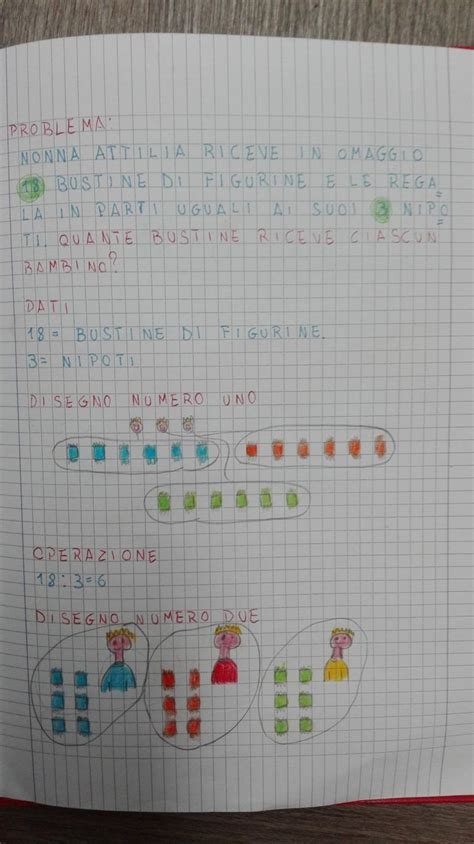 PROBLEMA:
NONNA ATTILIA RICEVE IN OMAGGIO
18 BUSTINE DI FIGURINE E LE REGA
LA IN PARTI UGUALI AI SUOI 3 NIPO
TI. QUANTE BUSTINE RICEVE CIASCUN
BAMBINO?
DATI
18 = BUSTINE DI FIGURINE.
3 = NIPOTI
DISEGNO NUMERO UNO
OPERAZIONE
18:3=6
DISEGNO NUMERO DUE